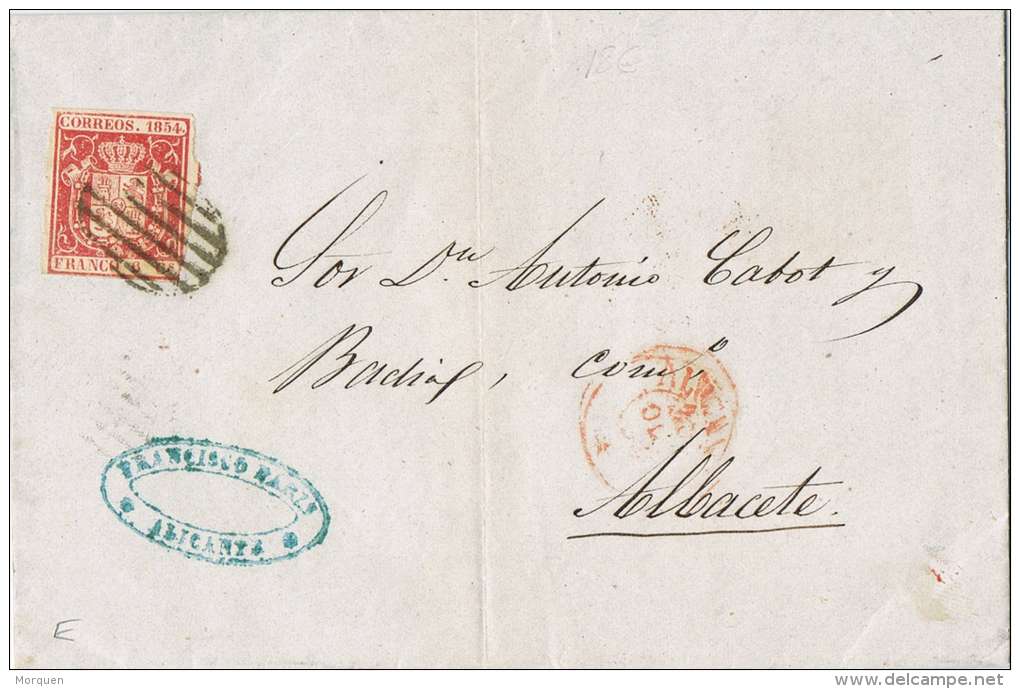 18€
CORREOS. 1854.
FRANCO
Sor Dn Antonio Cabot y
Badial, comº
Albacete.
FRANCISCO MARIN
ALICANTE
E
Morquen
delcampe.net